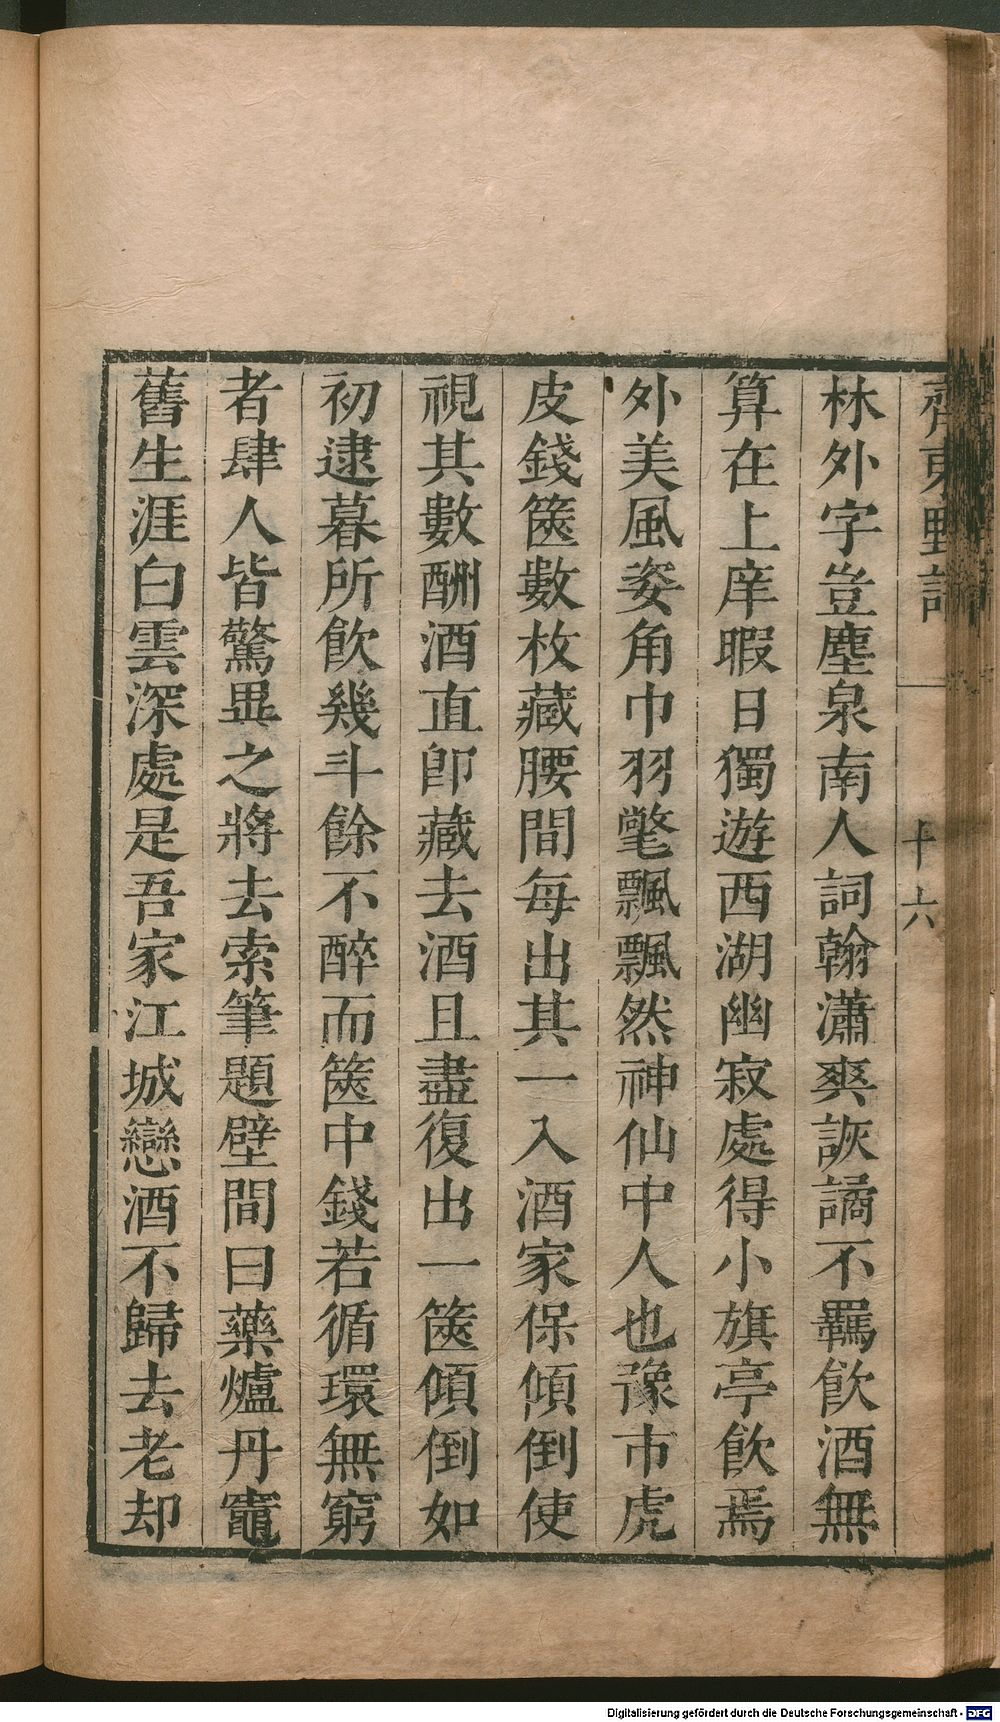 齊東野語
十六
林外字豈塵泉南人詞翰瀟爽詼譎不羈飲酒無
算在上庠暇日獨遊西湖幽寂處得小旗亭飲焉
外美風姿角巾羽氅飄飄然神仙中人也豫市虎
皮錢篋數枚藏腰間每出其一入酒家保傾倒使
視其數酬酒直即藏去酒且盡復出一篋傾倒如
初逮暮所飲幾斗餘不醉而篋中錢若循環無窮
者肆人皆驚異之將去索筆題壁間曰藥爐丹竈
舊生涯白雲深處是吾家江城戀酒不歸去老却
Digitalisierung gefördert durch die Deutsche Forschungsgemeinschaft - DFG